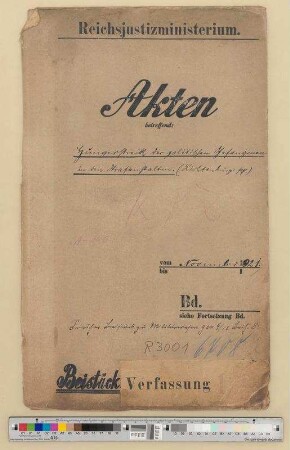 Reichsjustizministerium.
Akten
betreffend:
Hungerstreik der politischen Gefangenen
in den Strafanstalten (Lichtenburg pp.)
vom November 1921
bis 1
Bd.
siehe Fortsetzung Bd.
R 3001
Beistück Verfassung